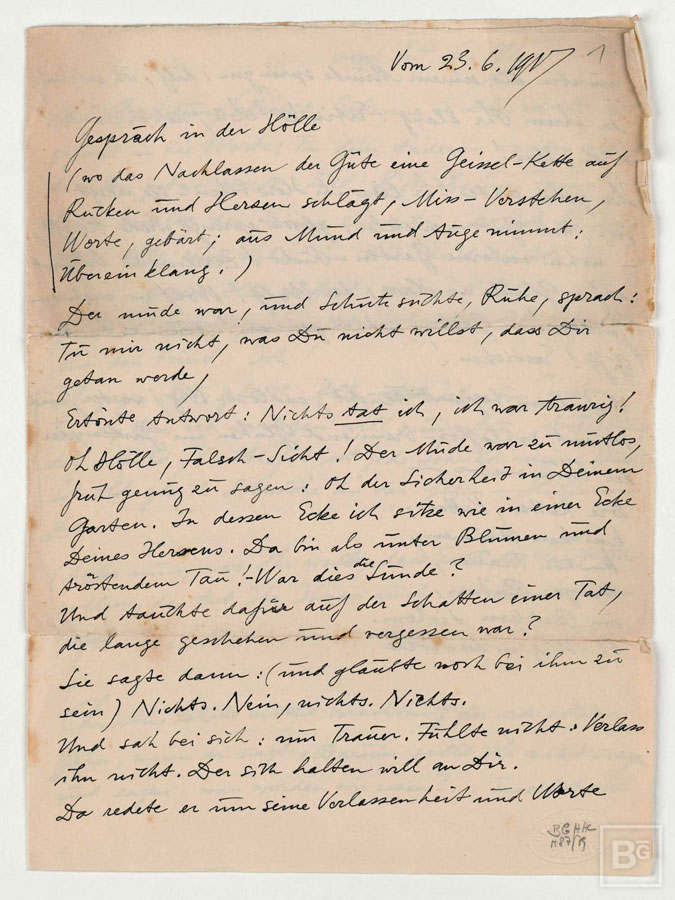 Vom 23.6.1917
1
Gespräch in der Hölle
(wo das Nachlassen der Güte eine Geissel-Kette auf
Rücken und Herzen schlägt, Miss-Verstehen,
Worte, gebärt; aus Mund und Auge nimmt:
Übereinklang.)
Der müde war, und Schutz suchte, Ruhe, sprach:
Tu mir nicht, was Du nicht willst, dass Dir
getan werde,
Ertönte Antwort: Nichts tat ich, ich war traurig!
Oh Hölle, Falsch-Sicht! Der Müde war zu mutlos,
früh genug zu sagen: Oh der Sicherheit in Deinem
Garten. In dessen Ecke ich sitze wie in einer Ecke
Deines Herzens. Da bin als unter Blumen und
tröstendem Tau!-War dies die Sünde?
Und tauchte dafür auf der Schatten einer Tat,
die lange geschehen und vergessen war?
Sie sagte dann: (und glaubte noch bei ihm zu
sein) Nichts. Nein, nichts. Nichts.
Und sah bei sich: nur Trauer. Fühlte nicht: Verlass
ihn nicht. Der sich halten will an Dir.
Da redete er um seine Verlassenheit und Worte
BG HHC
H87/79
BG